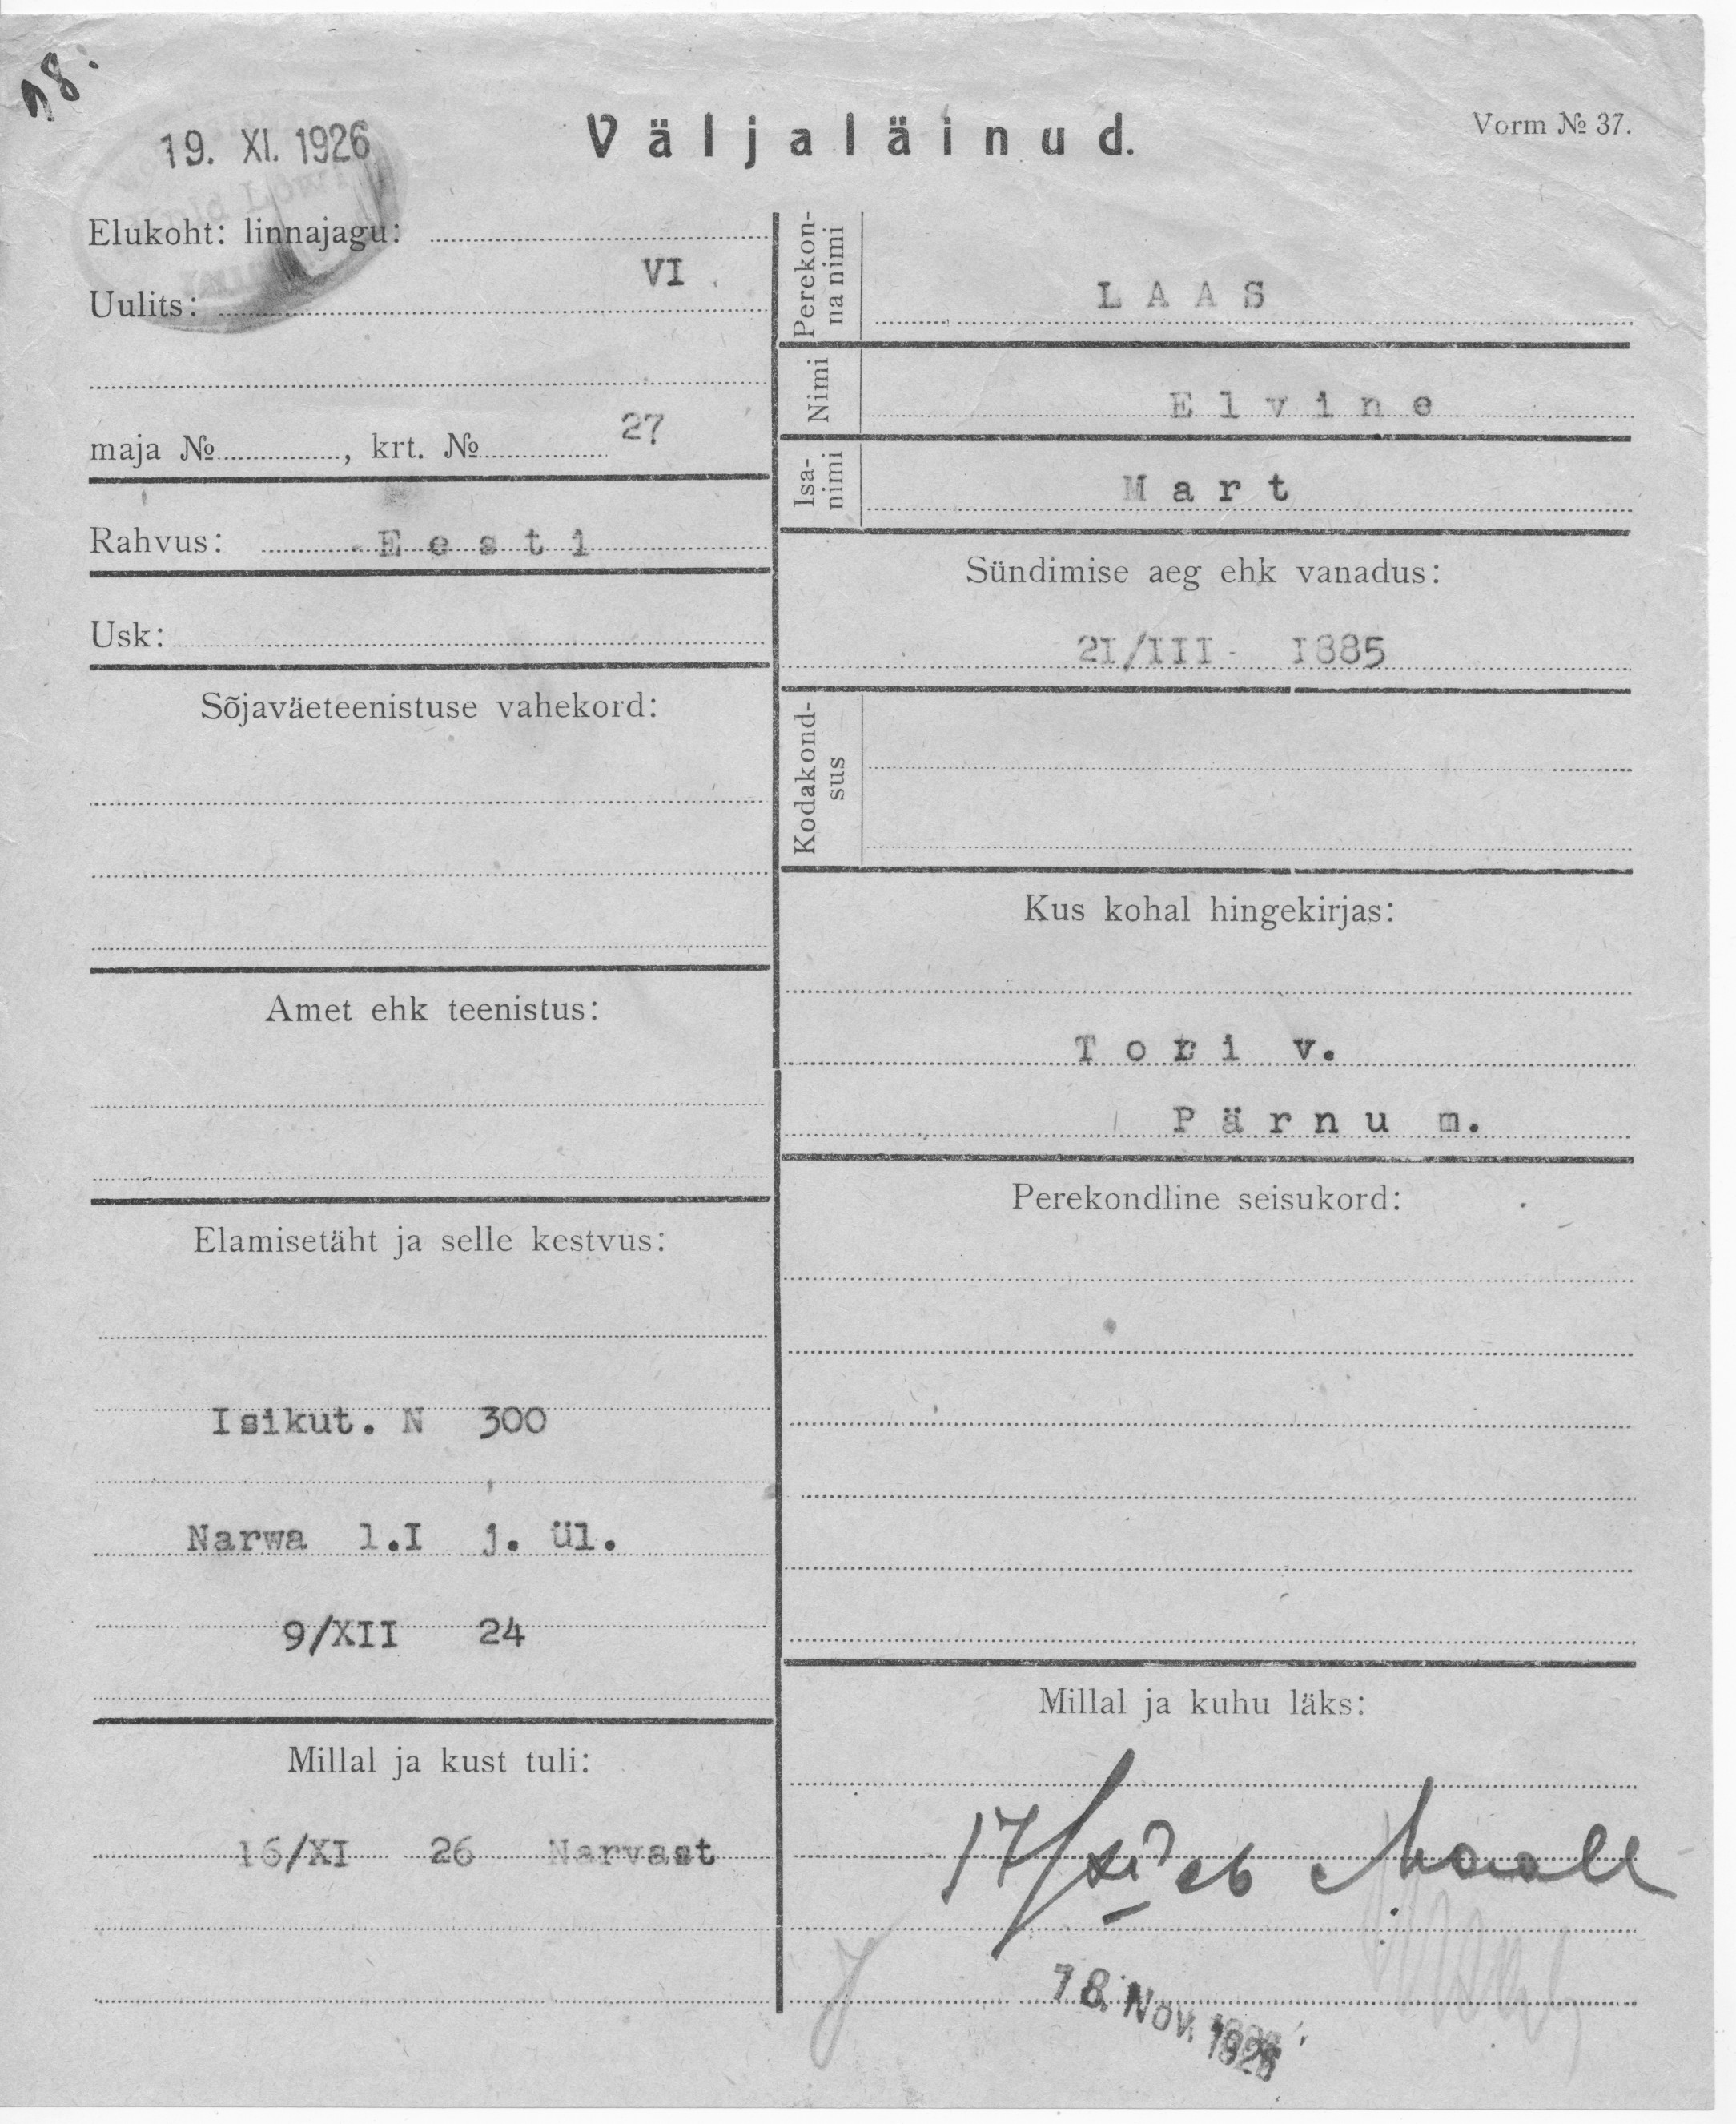 18.
19. XI. 1926
Väljaläinud.
Vorm № 37.
Elukoht: linnajagu:
VI
Uulits:
maja № , krt. № 27
Rahvus: Eesti
Usk:
Sõjaväeteenistuse vahekord:
Amet ehk teenistus:
Elamisetäht ja selle kestvus:
Isikut. N 300
Narwa l.I j. ül.
9/XII 24
Millal ja kust tuli:
16/XI 26 Narvast
Perekon-
na nimi
LAAS
Nimi
Elvine
Isa-
nimi
Mart
Sündimise aeg ehk vanadus:
21/III - 1885
Kodakond-
sus
Kus kohal hingekirjas:
Tori v.
Pärnu m.
Perekondline seisukord:
Millal ja kuhu läks:
17/XI 26 Maale
18. Nov. 1926